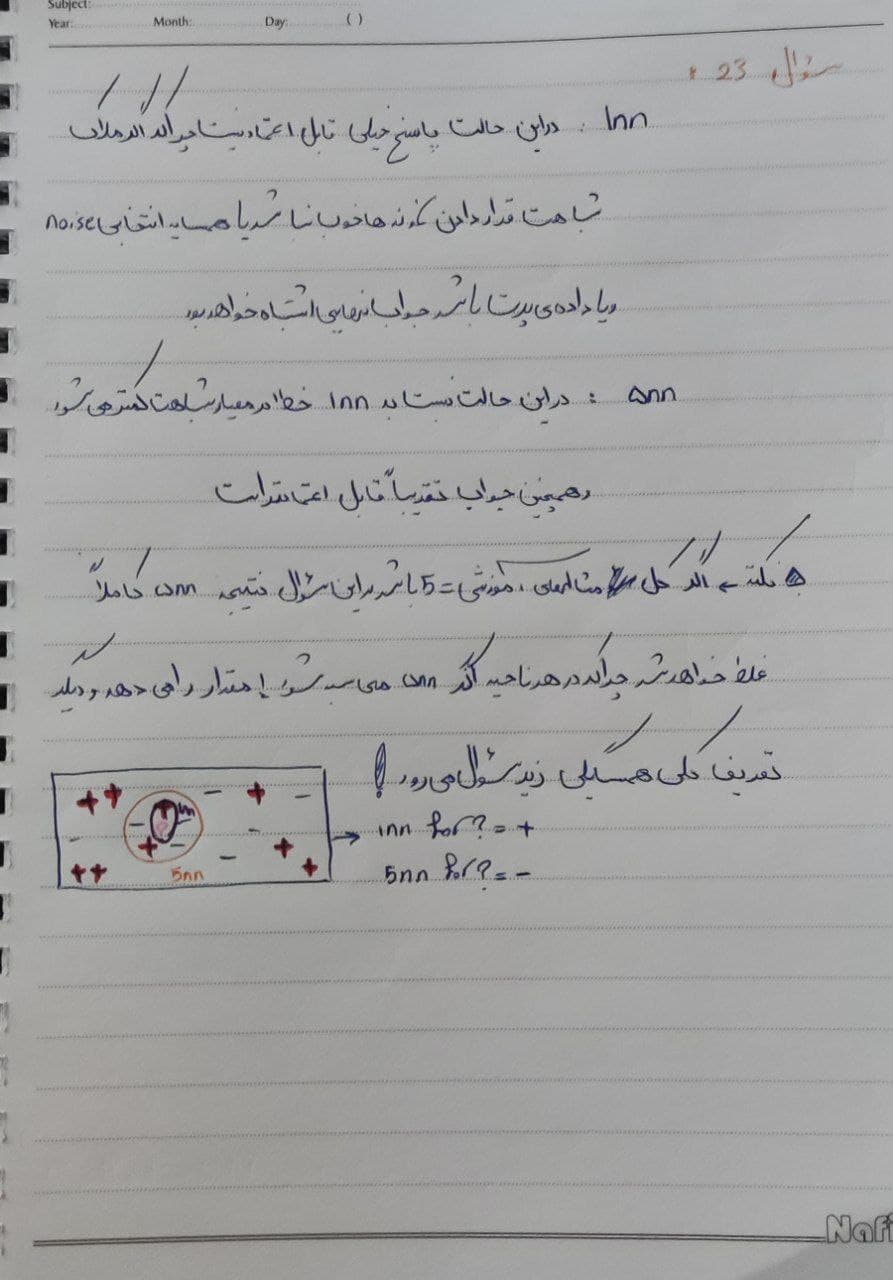 Subject:
Year: Month: Day: ( )
سؤال 23 :
1nn : در این حالت پاسخ خیلی قابل اعتماد نیست چراکه اگر ملاک
شباهت قرار دادن نمونه ها خوب نباشد یا همسایه انتخابی noise
و یا داده ی پرت باشد جواب نهایی اشتباه خواهد بود
۵nn : در این حالت نسبت به 1nn خطا در معیار شباهت کمتر می شود
و همچنین جواب تقریباً قابل اعتمادتر است
نکته ← اگر کل مثالهای آموزشی = 5 باشد در این سؤال نتیجه ۵nn کاملاً
غلط خواهد شد چراکه در هر ناحیه اگر ۵nn محاسبه شود 1 مقدار را می دهد و دیگر
تعریف کلی همسایگی زیر سؤال می رود !
+ + - + - - + 1nn
? - + - - +
+ + 5nn - +
→ 1nn for ? = +
5nn for ? = -
Nafi